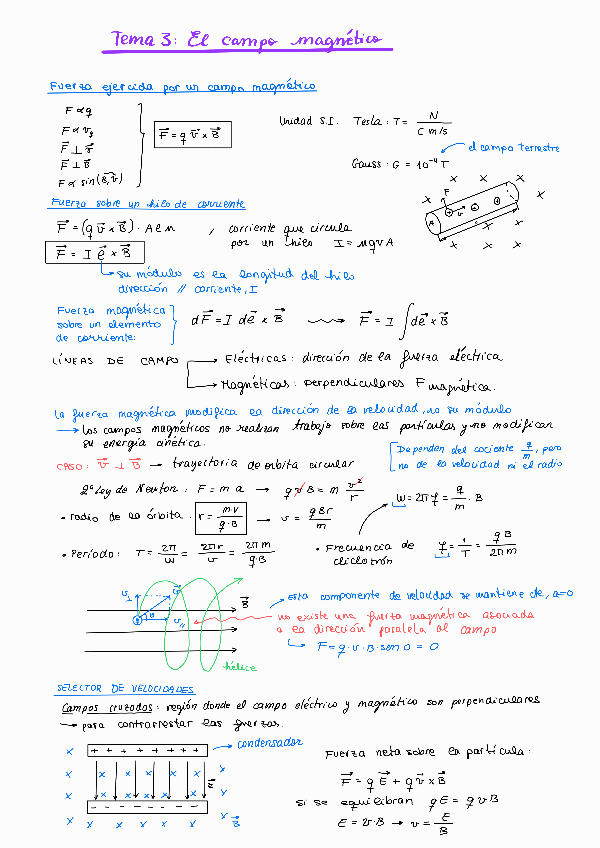 Tema 3: El campo magnético
Fuerza ejercida por un campo magnético
F ∝ q
F ∝ v_q
F⃗ ⊥ v⃗
F⃗ ⊥ B⃗
F ∝ sin(B⃗,v⃗)
F⃗ = q v⃗ × B⃗
Unidad S.I. Tesla: T = N / C m/s
Gauss: G = 10⁻⁴ T
el campo terrestre
Fuerza sobre un hilo de corriente
F⃗ = (q v⃗ × B⃗) · A ℓ n , corriente que circula
por un hilo I = nqvA
F⃗ = I ℓ⃗ × B⃗
su módulo es la longitud del hilo
dirección // corriente, I
x x x
F
x x
A v⃗
x x x
Fuerza magnética
sobre un elemento
de corriente:
dF⃗ = I dℓ⃗ × B⃗ F⃗ = I ∫ dℓ⃗ × B⃗
LÍNEAS DE CAMPO → Eléctricas: dirección de la fuerza eléctrica
→ Magnéticas: perpendiculares F magnética.
La fuerza magnética modifica la dirección de la velocidad, no su módulo
→ Los campos magnéticos no realizan trabajo sobre las partículas y no modifican
su energía cinética.
Dependen del cociente q/m, pero
no de la velocidad ni el radio
CASO: v⃗ ⊥ B⃗ → trayectoria de órbita circular
2ª Ley de Newton: F = m a → q v B = m v²/r
w = 2π f = q/m · B
• radio de la órbita: r = m·v / q·B → v = qBr / m
• Período: T = 2π/w = 2πr/v = 2πm/qB
• Frecuencia de
ciclotrón
f = 1/T = qB/2πm
v⊥ v⃗ B⃗
θ v∥
hélice
Esta componente de velocidad se mantiene cte, a=0
no existe una fuerza magnética asociada
a la dirección paralela al campo
F = q·v·B·sen 0 = 0
SELECTOR DE VELOCIDADES
Campos cruzados: región donde el campo eléctrico y magnético son perpendiculares
→ para contrarrestar las fuerzas.
condensador
x + + + + + + + +
x x x x x x x
E⃗
x x x x x x x
x - - - - - - - -
x x x x x x B⃗
Fuerza neta sobre la partícula:
F⃗ = q E⃗ + q v⃗ × B⃗
si se equilibran qE = q v B
E = v·B → v = E/B